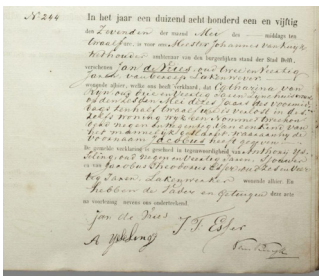 No 244
In het jaar een duizend acht honderd een en vijftig
den Zevenden der maand Mei des middags ten
twaalf ure, is voor ons Meester Johannes van Kuyk
Wethouder ambtenaar van den burgerlijken stand der Stad Delft,
verschenen Jan de Vries, oud twee en veertig
Jaren, van beroep Lakenwever
wonende alhier, welke ons heeft verklaard, dat Catharina van
zijne huisvrouw
op den zesden Mei dezes Jaars des voormid
dags ten half twaalf ure is verlost in des
zelfs woning wijk een Nommer twee hon
derd negen en van een kind van
het mannelijk geslacht waaraan hij de
voornaam Jacobus heeft gegeven
De gemelde verklaring is geschied in tegenwoordigheid van Anthony Ys
seling, oud negen en veertig Jaren,
en van Jacobus Theodorus Esser, oud
tig Jaren, Lakenwerker wonende alhier. En
hebben de Vader en Getuigen deze acte
na voorlezing nevens ons onderteekend.
Jan de Vries
J. T. Esser
A Ysseling